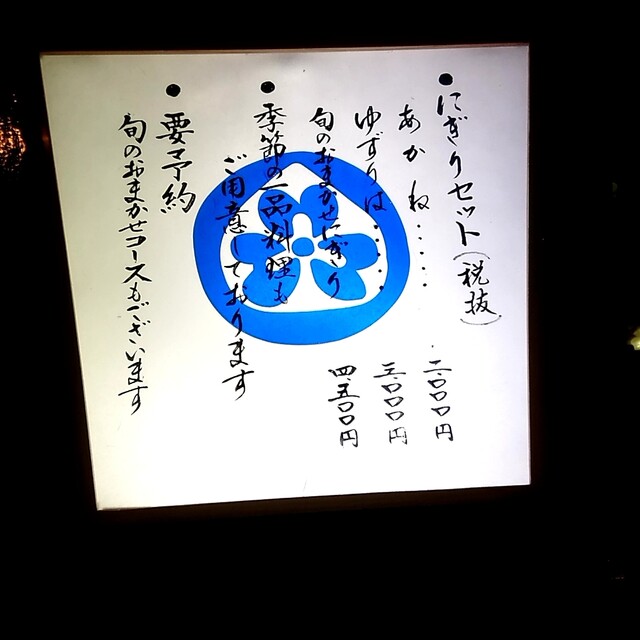 ●にぎりセット(税抜)
あかね……二、〇〇〇円
ゆずりは……三、〇〇〇円
旬のおまかせにぎり 四、五〇〇円
●季節の一品料理も
ご用意しております
●要予約
旬のおまかせコースもございます